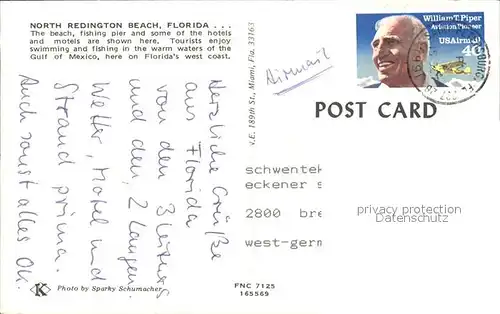 NORTH REDINGTON BEACH, FLORIDA . . .
The beach, fishing pier and some of the hotels
and motels are shown here. Tourists enjoy
swimming and fishing in the warm waters of the
Gulf of Mexico, here on Florida's west coast.
Airmail
William T. Piper
Aviation Pioneer
USAirmail
40
POST CARD
V.E. 189th St., Miami, Fla. 33163
Herzliche Grüße
aus Florida
von den 3
und den 2 Langen.
Wetter, Hotel und
Strand prima.
Auch sonst alles OK.
schwentek
eckener s
2800 bre
west-germ
privacy protection
Datenschutz
K
Photo by Sparky Schumacher
FNC 7125
165569